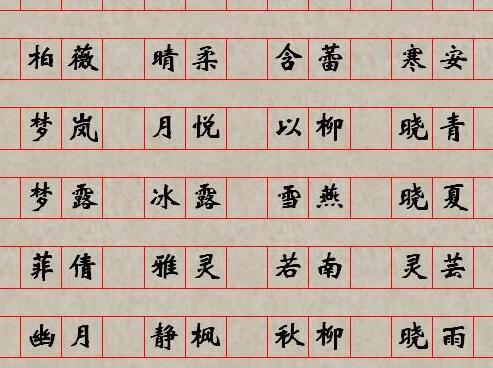 柏薇 晴柔 含蕾 寒安
梦岚 月悦 以柳 晓青
梦露 冰露 雪燕 晓夏
菲倩 雅灵 若南 灵芸
幽月 静枫 秋柳 晓雨